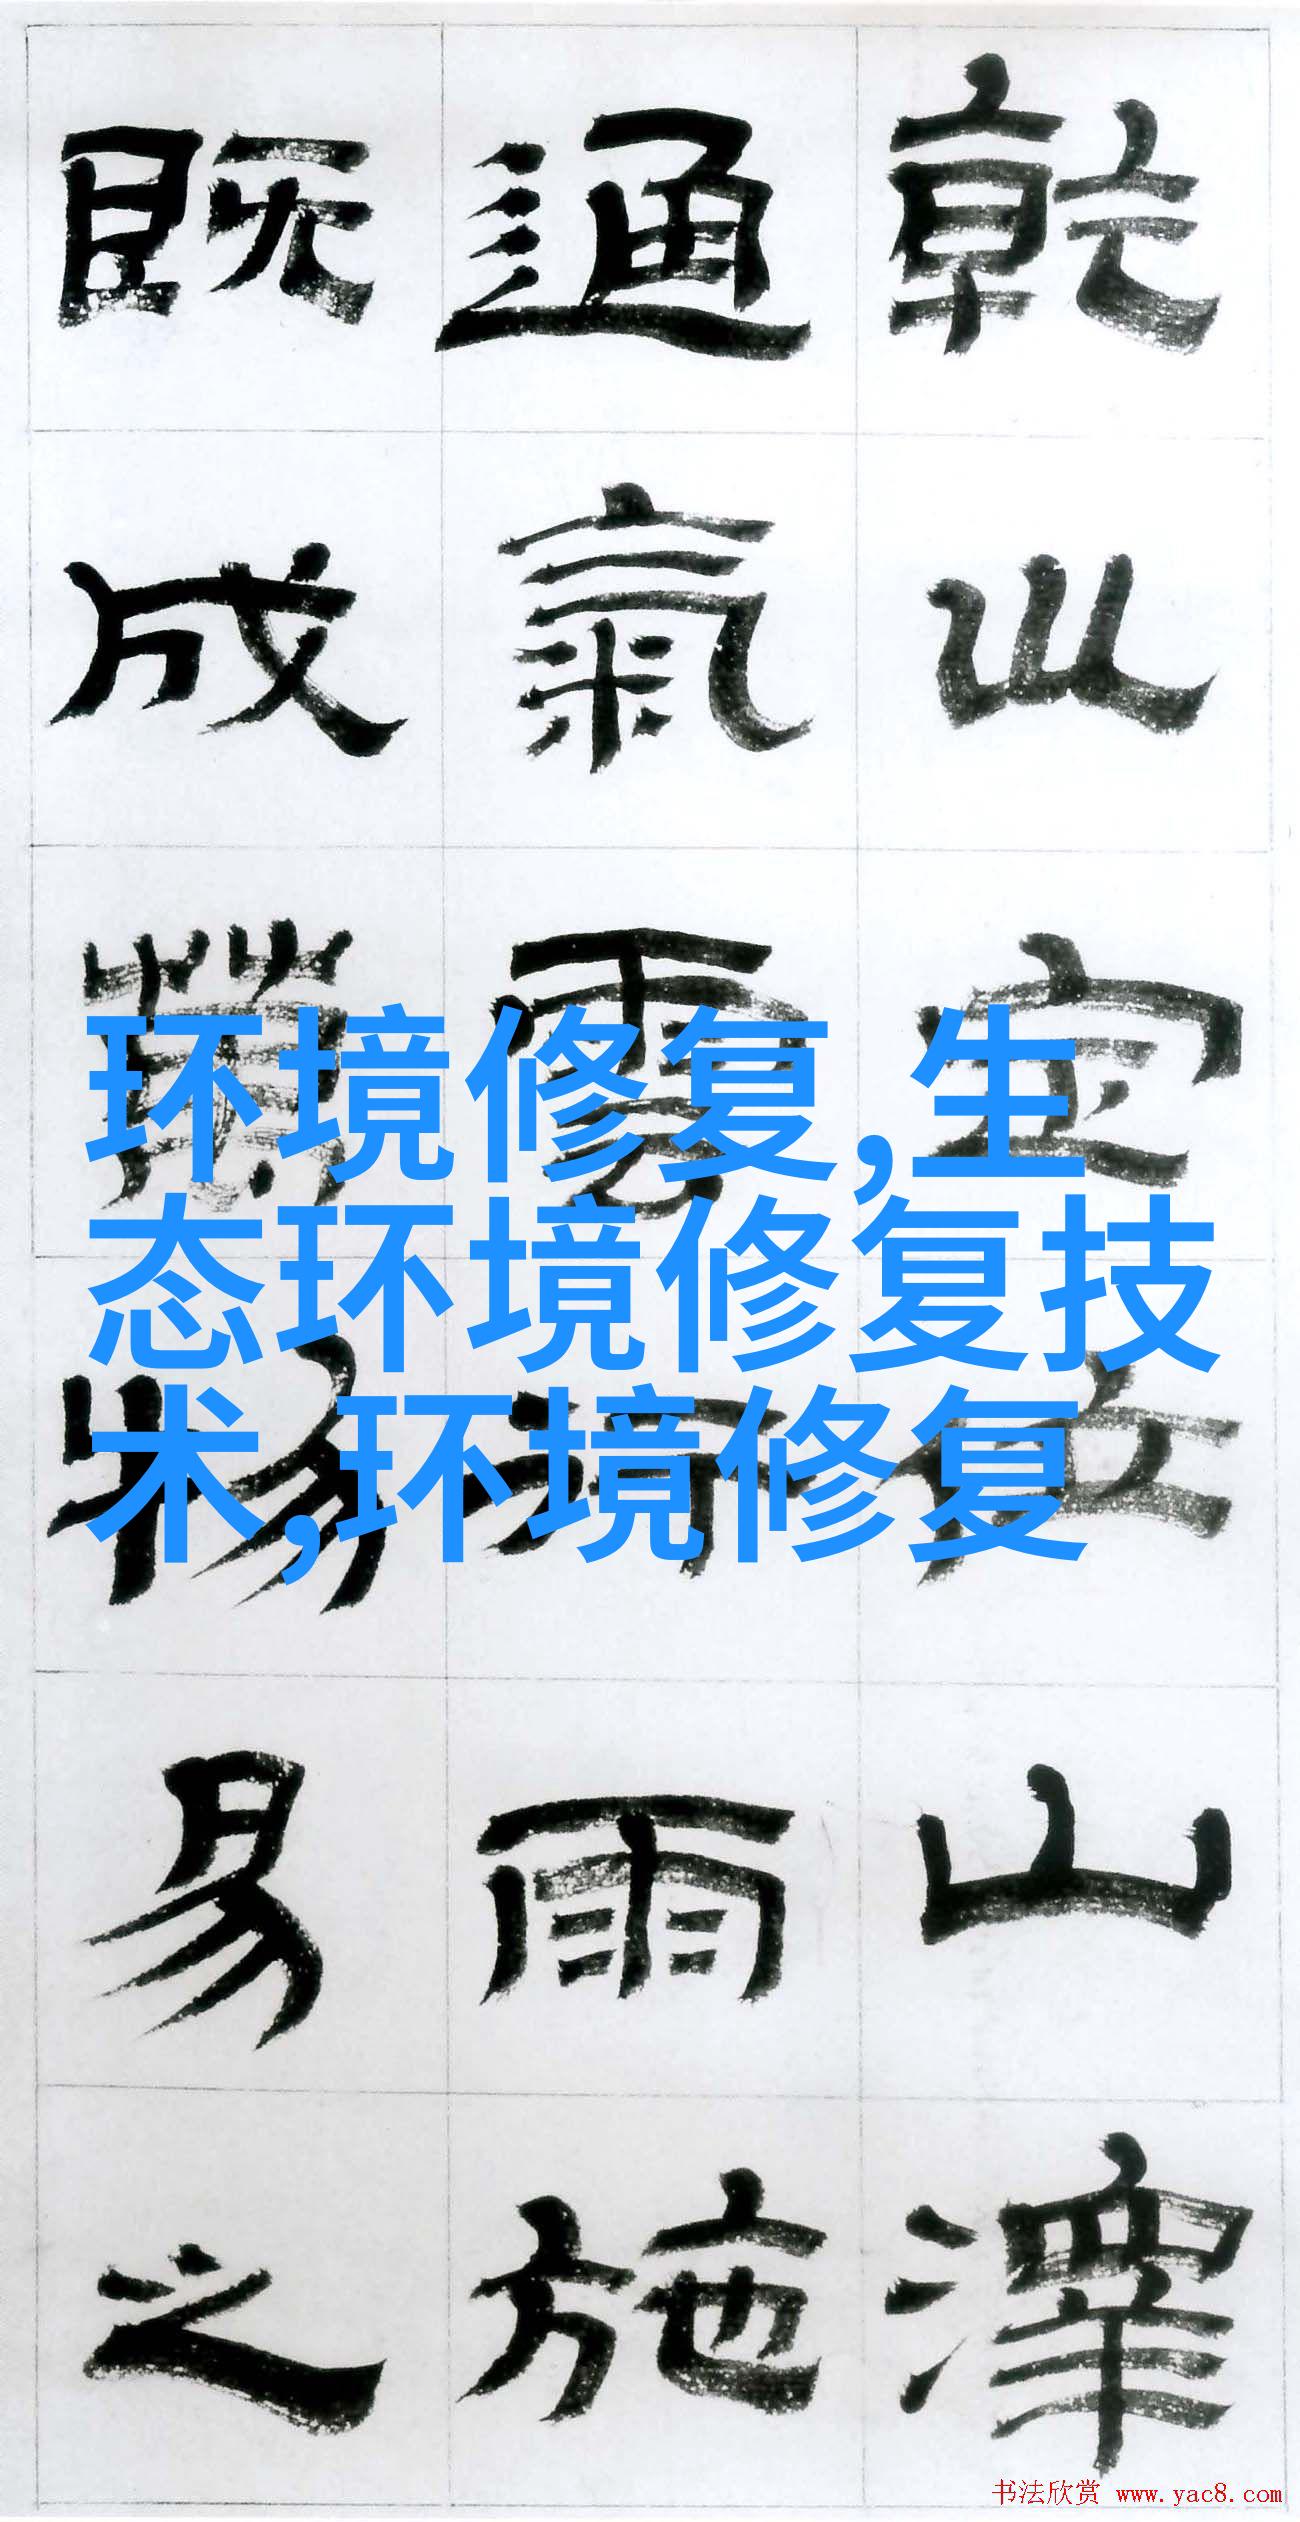 乾坤定位山澤
通氣雲行雨施
既成萬物易之
环境修复,生
态环境修复技
术,环境修复
书法欣赏 www.yac8.com